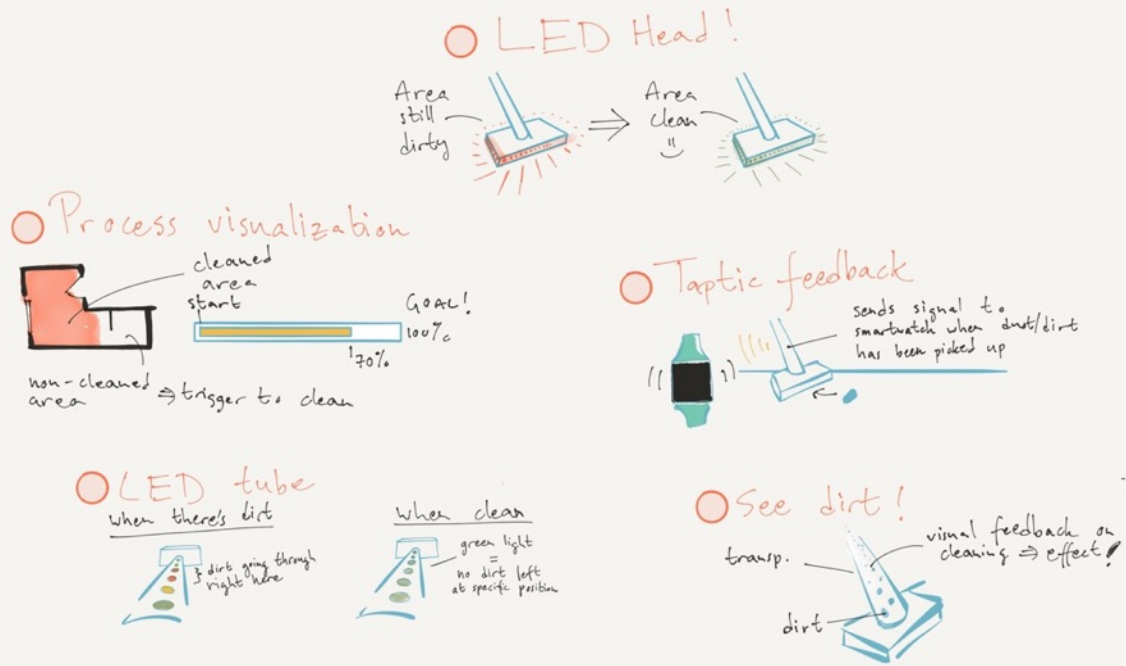 LED Head!
Area
still
dirty
⇒
Area
clean
Process visualization
cleaned
area
start
GOAL!
100%
70%
non-cleaned
area
⇒ trigger to clean
Taptic feedback
sends signal to
smartwatch when dust/dirt
has been picked up
LED tube
when there's dirt
dirt going through
right here
when clean
green light
=
no dirt left
at specific position
See dirt!
transp.
visual feedback on
cleaning ⇒ effect!
dirt